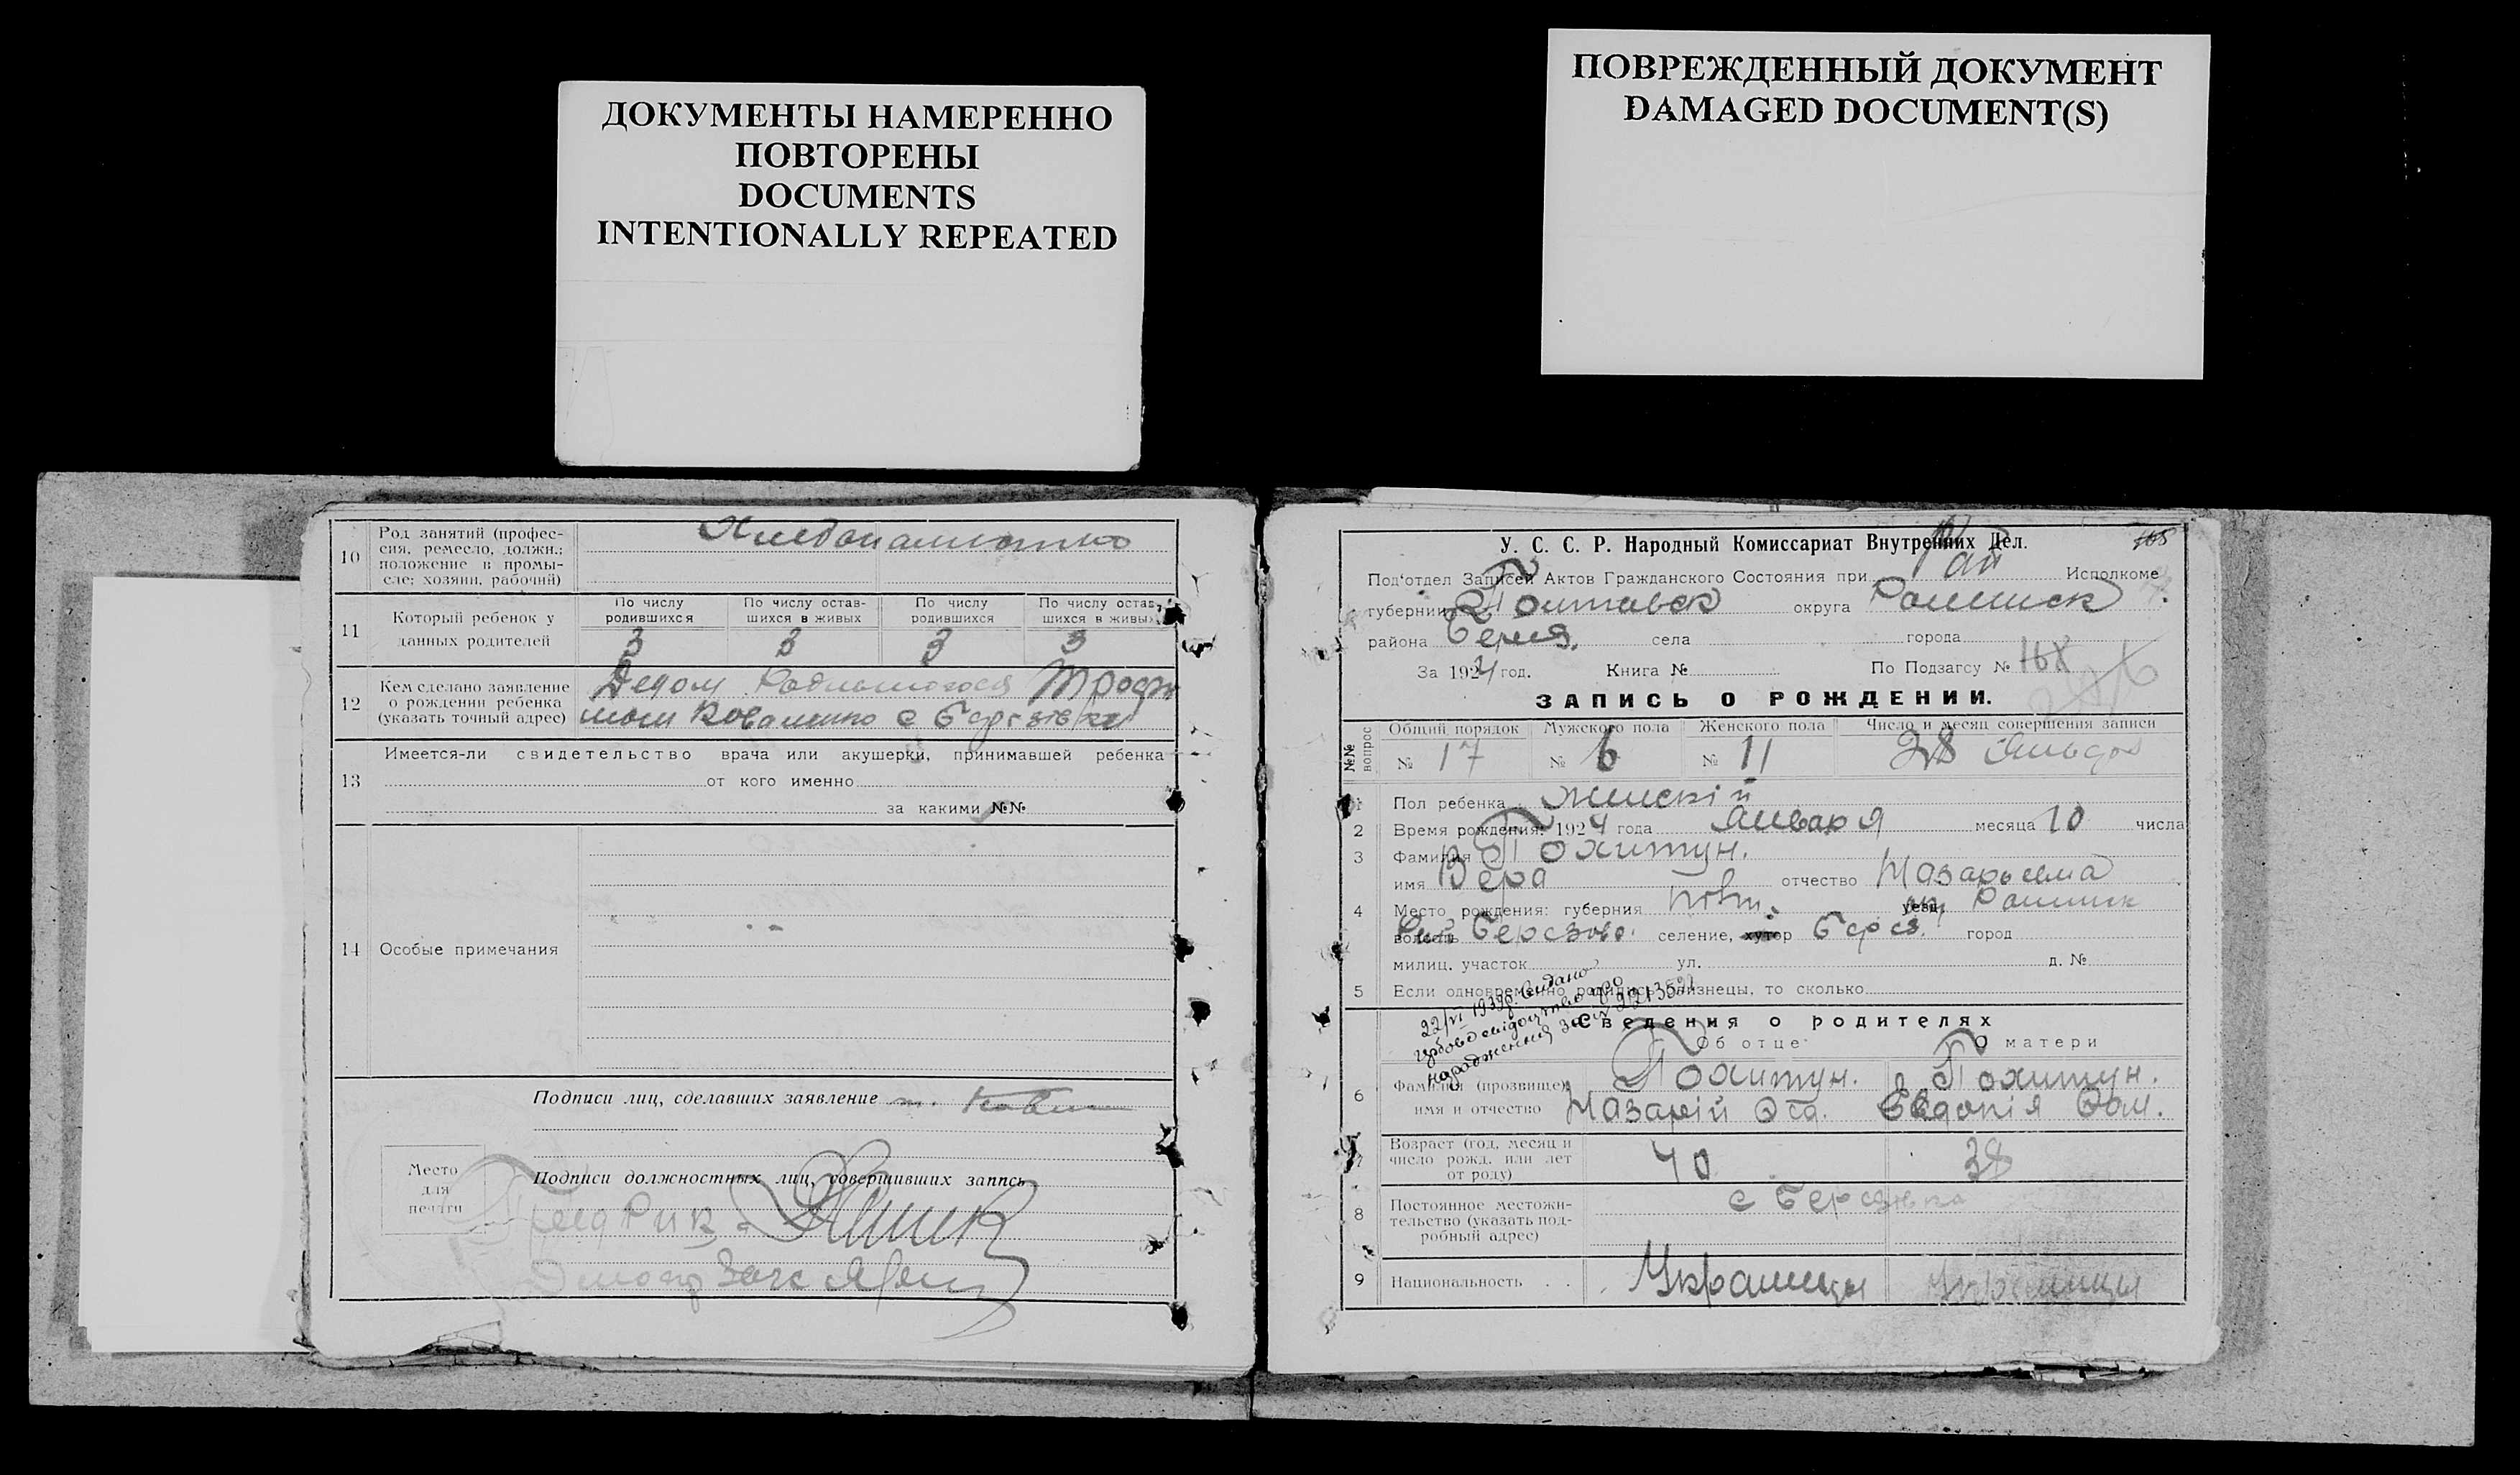 ДОКУМЕНТЫ НАМЕРЕННО
ПОВТОРЕНЫ
DOCUMENTS
INTENTIONALLY REPEATED
ПОВРЕЖДЕННЫЙ ДОКУМЕНТ
DAMAGED DOCUMENT(S)
10 Род занятий (профессия, ремесло, должн.; положение в промысле: хозяин, рабочий)
11 Который ребенок у данных родителей
По числу родившихся 3
По числу оставшихся в живых 3
По числу родившихся 3
По числу оставшихся в живых 3
12 Кем сделано заявление о рождении ребенка (указать точный адрес)
Дедом
13 Имеется-ли свидетельство врача или акушерки, принимавшей ребенка
от кого именно
за какими №№
14 Особые примечания
Подписи лиц, сделавших заявление
Место для печати
Подписи должностных лиц, совершивших запись
Пред Рик
У. С. С. Р. Народный Комиссариат Внутренних Дел.
Под'отдел Записей Актов Гражданского Состояния при Рай Исполкоме
губернии Полтавск округа Роменск
района села города
За 1924 год. Книга № По Подзагсу №
ЗАПИСЬ О РОЖДЕНИИ.
№№ вопрос
Общий порядок № 17
Мужского пола № 6
Женского пола № 11
Число и месяц совершения записи 28 Января
1 Пол ребенка женскій
2 Время рождения: 1924 года Января месяца 10 числа
3 Фамилия Похитун.
имя Вера отчество Назарьевна
4 Место рождения: губерния Полт. Роменск
волость селение, хутор Берез. город
милиц. участок ул. д. №
5 Если одновременно родились близнецы, то сколько
22/VI 1939р. видано
свідоцтво про
народження за №
Сведения о родителях
Об отце О матери
6 Фамилия (прозвище) имя и отчество
Похитун. Похитун.
Назарій Евдокія
7 Возраст (год, месяц и число рожд. или лет от роду)
40 38
8 Постоянное местожительство (указать подробный адрес)
с Березівка
9 Национальность
Украинцы Украинцы